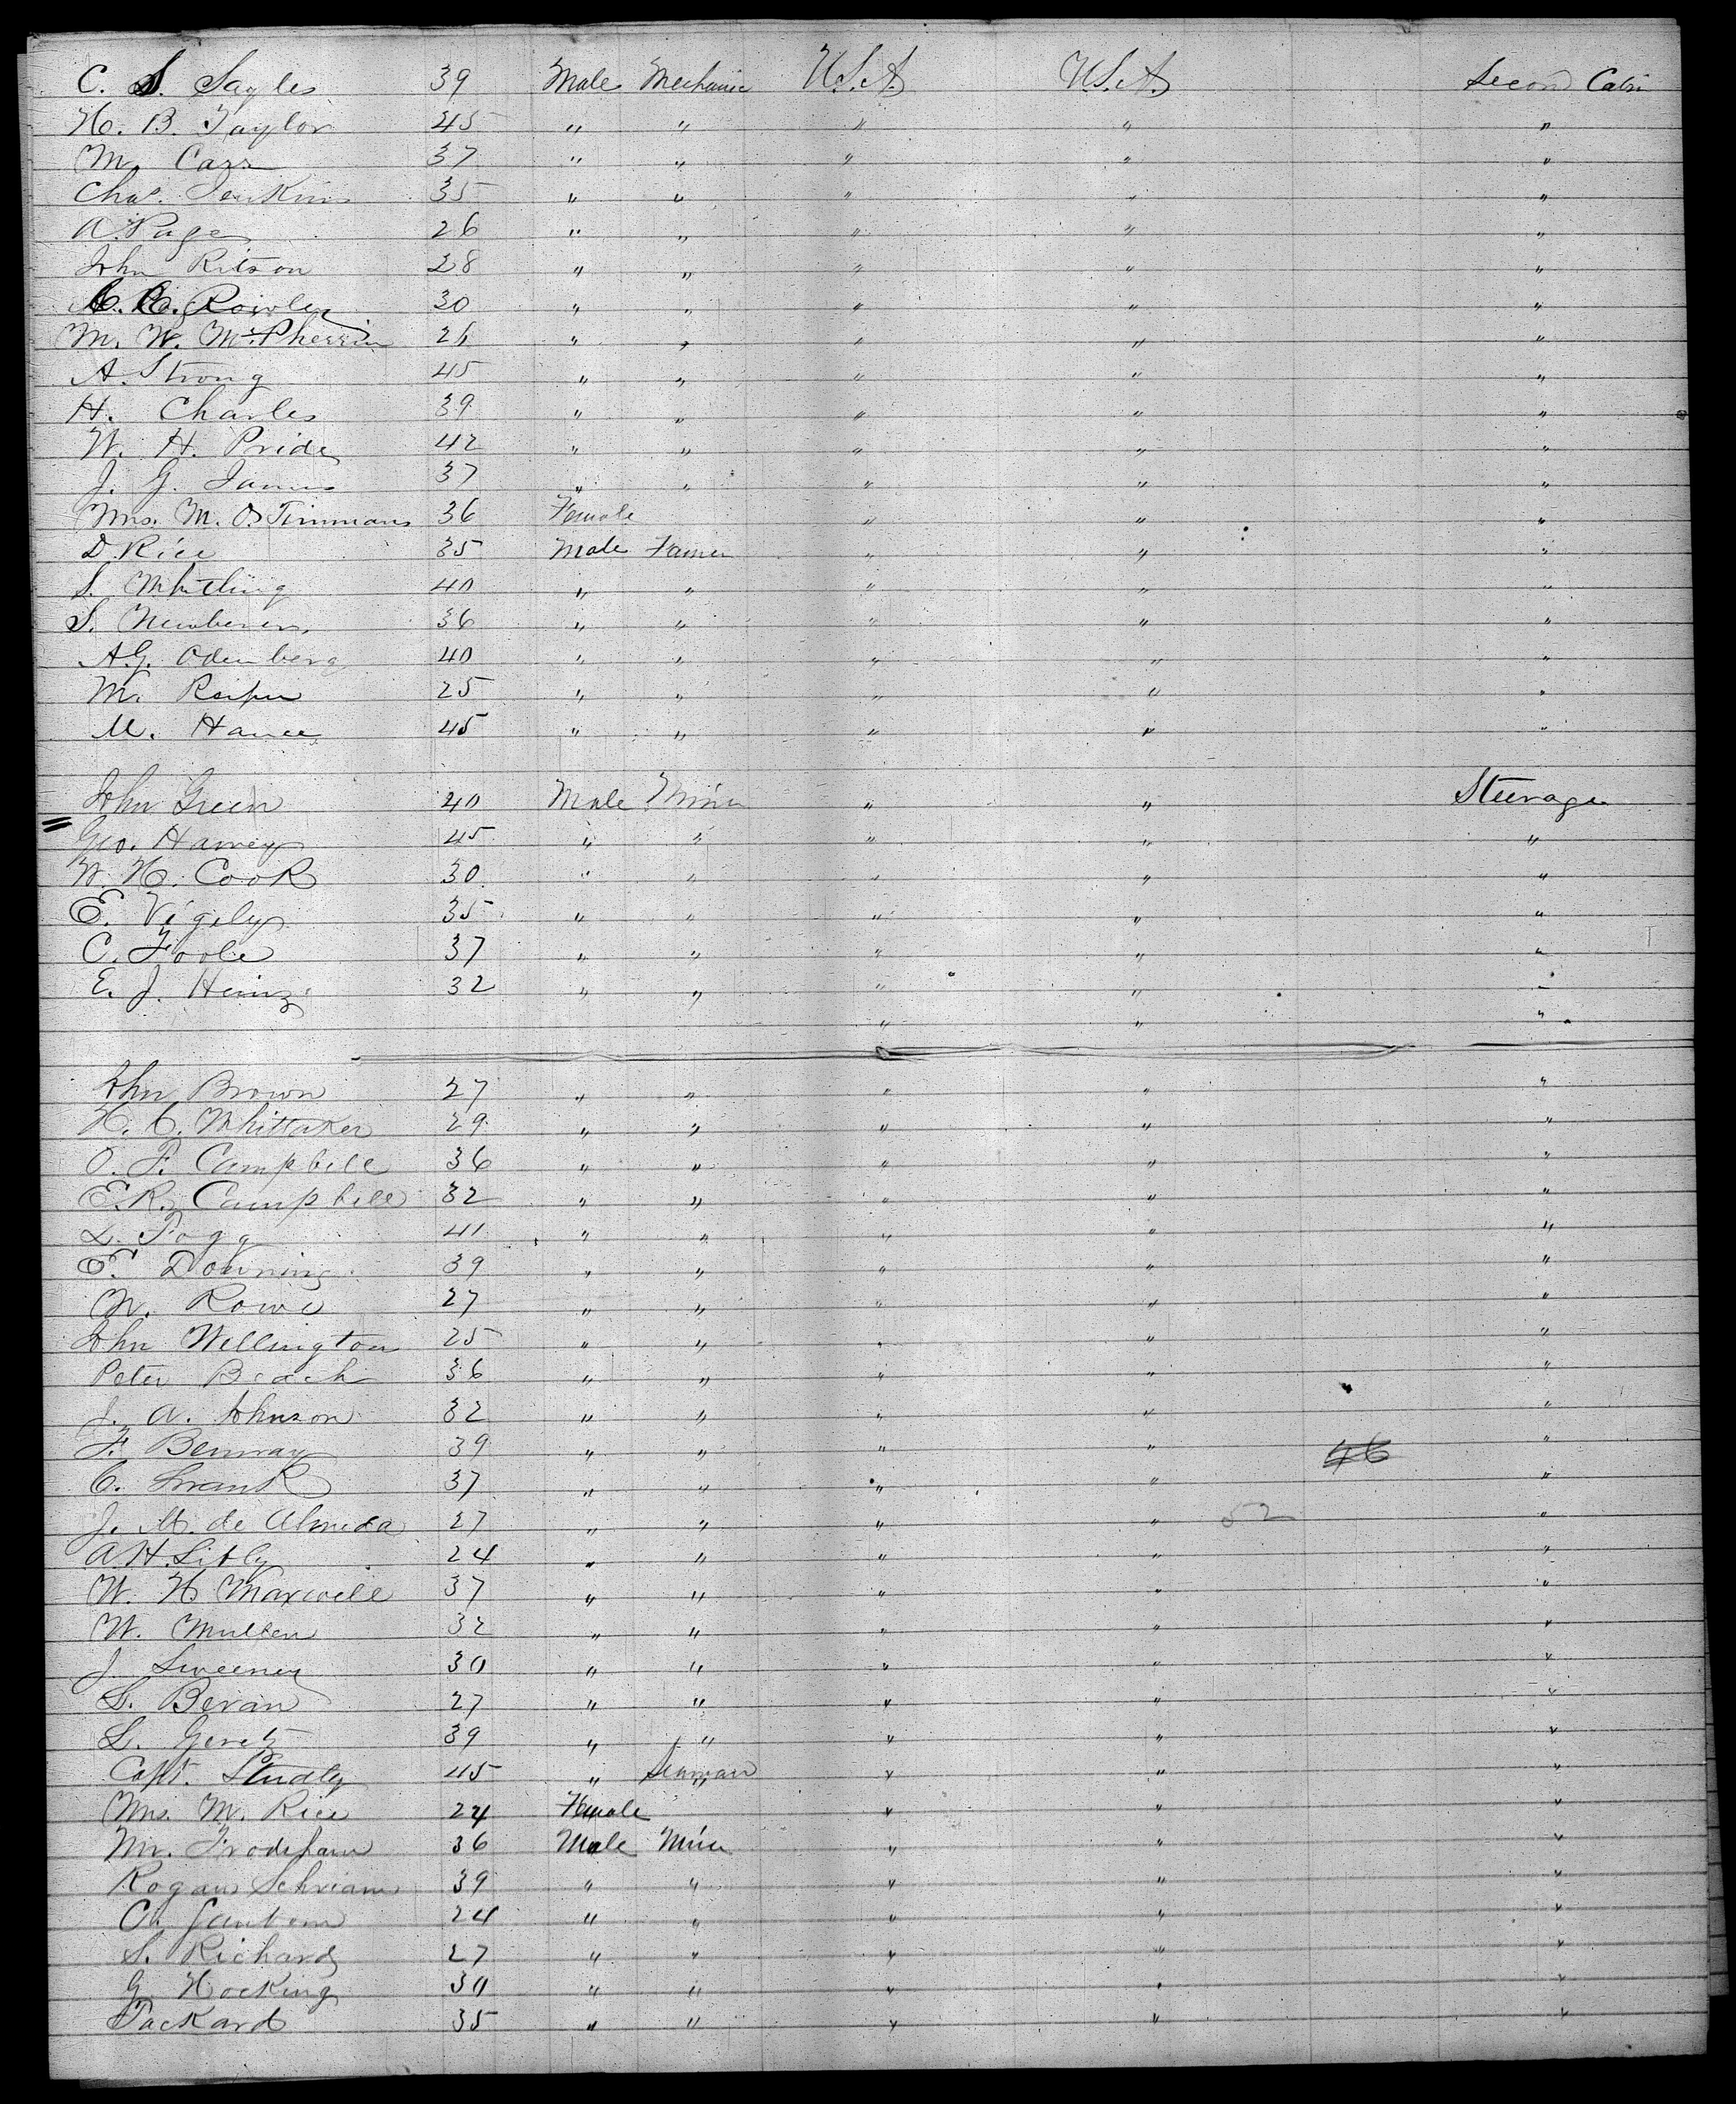 C. S. Sayles 39 Male Mechanic U.S.A. U.S.A. Second Cabin
H. B. Taylor 45 " " " " "
M. Carr 37 " " " " "
Chas. Jenkins 35 " " " " "
A. Page 26 " " " " "
John Ritson 28 " " " " "
Rowley 30 " " " " "
M. W. McPherrin 26 " " " " "
A. Strong 45 " " " " "
H. Charles 39 " " " " "
W. H. Pride 42 " " " " "
J. G. James 37 " " " " "
Mrs. M. O. Timmans 36 Female " " "
D. Rice 35 Male Farmer " " "
S. Whitling 40 " " " " "
S. 36 " " " " "
A.G. Odenberg 40 " " " " "
M. 25 " " " " "
M. Hance 45 " " " " "
John Green 40 Male Miner " " Steerage
Geo. Harvey 45 " " " " "
W. H. Cook 30 " " " " "
E. Vigily 35 " " " " "
C. Foole 37 " " " " "
E. J. Heinz 32 " " " " "
" " "
John Brown 27 " " " " "
H. C. Whittaker 29 " " " " "
O. F. Campbell 36 " " " " "
E. R. Campbell 32 " " " " "
L. Fogg 41 " " " " "
E. Downing 39 " " " " "
W. Rowe 27 " " " " "
John Wellington 25 " " " " "
Peter Beach 36 " " " " "
J. A. Johnson 32 " " " " "
F. Benway 39 " " " " 46 "
C. Frank 37 " " " " "
J. M. de Almeda 27 " " " " 52 "
A.H. Sibly 24 " " " " "
W. H. Maxwell 37 " " " " "
W. Mullen 32 " " " " "
J. Sweeney 30 " " " " "
S. Bevan 27 " " " " "
L. Geretz 39 " " " " "
Capt. Studly 45 " Seaman " " "
Mrs. M. Rice 24 Female " " "
Mr. Frodsham 36 Male Miner " " "
Rogan Schriam 39 " " " " "
24 " " " " "
S. Richards 27 " " " " "
G. Hocking 30 " " " " "
Packard 35 " " " " "